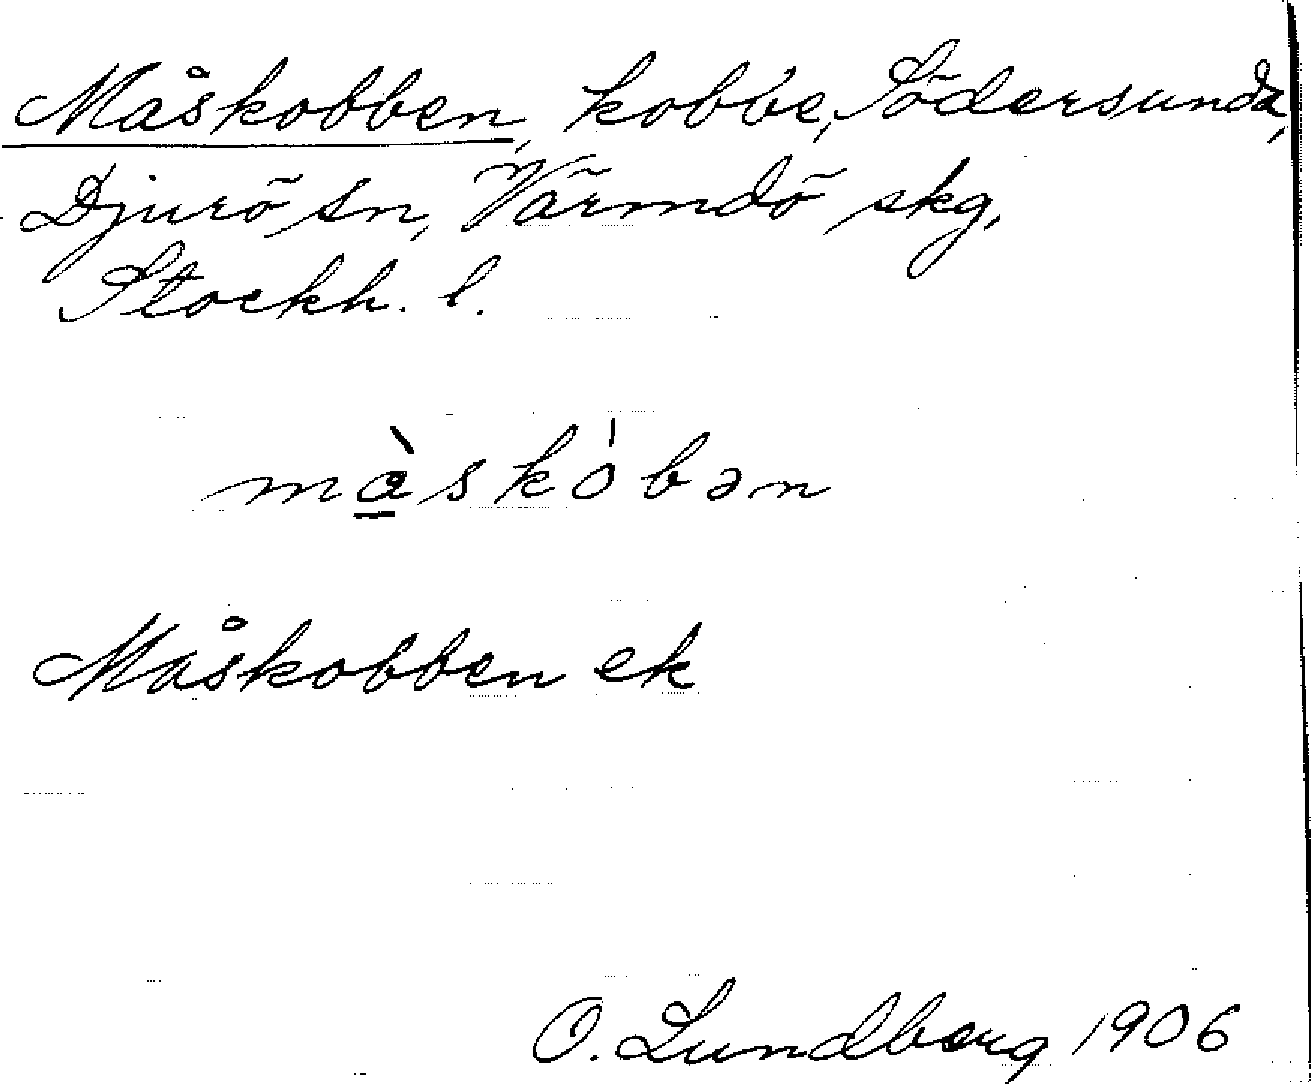 Måskobben, kobbe, Södersunda,
Djurö sn, Värmdö skg,
Stockh. l.
màskóbən
Måskobben ek
O. Lundberg 1906